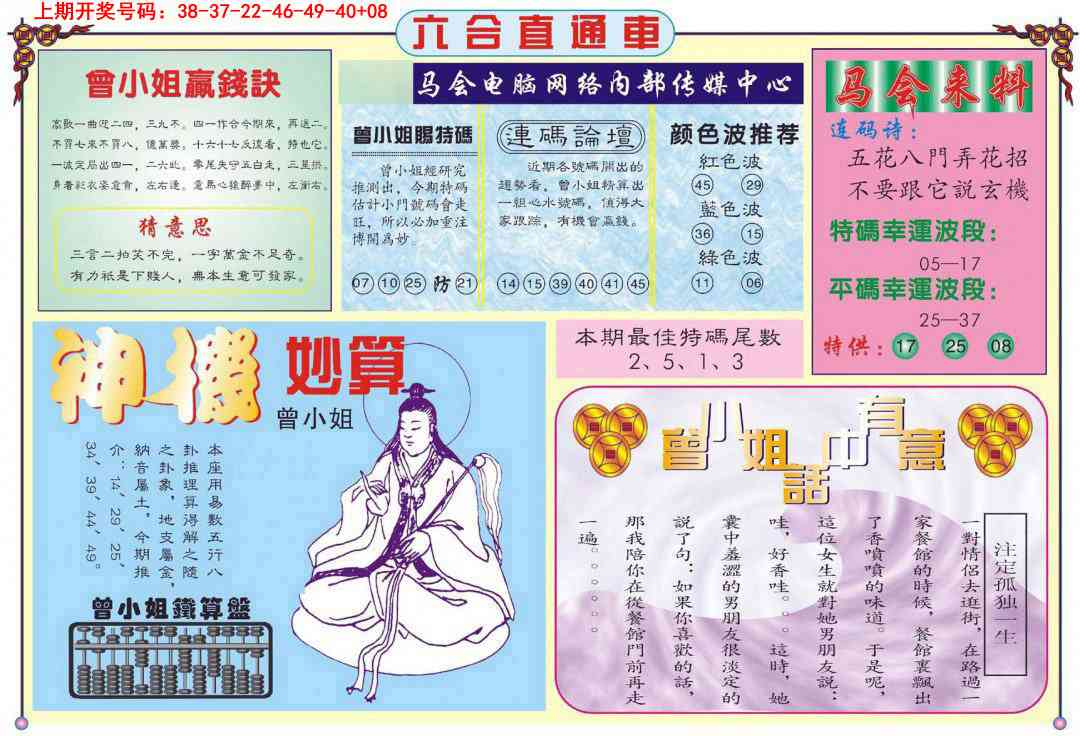 上期开奖号码：38-37-22-46-49-40+08
六合直通車
马会电脑网络内部传媒中心
曾小姐贏錢訣
高歌一曲迎二四，三九不。四一作合今期來，再送二。
不買七來不買八，億萬獎。十六十七反復看，特也它。
一波定局出四一，二六此。零尾失守五白走，三星掛。
身着彩衣姿意貪，左右逢。意馬心猿醉夢中，左衝右。
猜意思
三言二拍笑不完，一字萬金不足奇。
有力祇是下賤人，無本生意可發家。
曾小姐賜特碼
曾小姐經研究
推測出，今期特碼
估計小門號碼會走
旺，所以必加重注
博開爲妙。
07 10 25 防 21
連碼論壇
近期各號碼開出的
趨勢看，曾小姐精算出
一組心水號碼，值得大
家跟踪，有機會贏錢。
14 15 39 40 41 45
颜色波推荐
紅色波
45 29
藍色波
36 15
綠色波
11 06
马会来料
连码诗：
五花八門弄花招
不要跟它説玄機
特碼幸運波段：
05—17
平碼幸運波段：
25—37
特供：17 25 08
本期最佳特碼尾數
2、5、1、3
神機妙算
曾小姐
本座用易數五行八
卦推理算得解之隨
之卦象，地支屬金，
納音屬土，今期推
介：14、29、25、
34、39、44、49。
曾小姐鐵算盤
曾小姐話中有意
注定孤独一生
一對情侣去逛街，在路過一
家餐館的時候，餐館裏飄出
了香噴噴的味道。于是呢，
這位女生就對她男朋友説：
哇，好香哇。。。這時，她
囊中羞澀的男朋友很淡定的
説了句：如果你喜歡的話，
那我陪你在從餐館門前再走
一遍。。。。。。